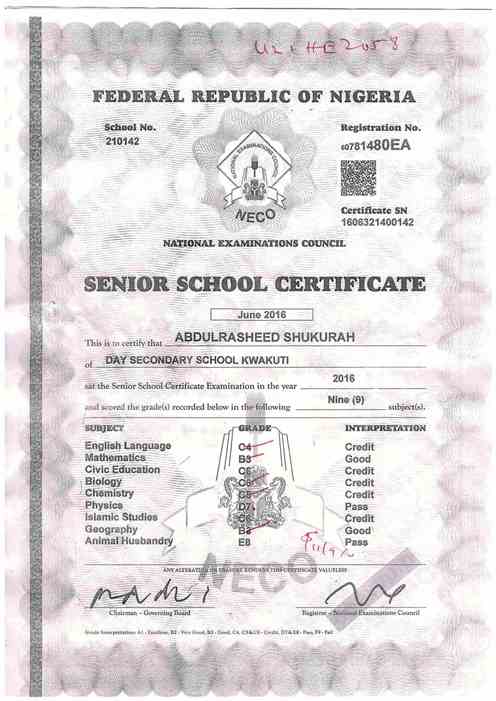 FEDERAL REPUBLIC OF NIGERIA
School No.
210142
Registration No.
60781480EA
NATIONAL EXAMINATIONS COUNCIL
NECO
Certificate SN
1606321400142
NATIONAL EXAMINATIONS COUNCIL
SENIOR SCHOOL CERTIFICATE
June 2016
This is to certify that ABDULRASHEED SHUKURAH
of DAY SECONDARY SCHOOL KWAKUTI
sat the Senior School Certificate Examination in the year 2016
and scored the grade(s) recorded below in the following Nine (9) subject(s).
SUBJECT GRADE INTERPRETATION
English Language C4 Credit
Mathematics B3 Good
Civic Education C6 Credit
Biology C6 Credit
Chemistry C5 Credit
Physics D7 Pass
Islamic Studies C6 Credit
Geography B3 Good
Animal Husbandry E8 Pass
ANY ALTERATION OR ERASURE RENDERS THIS CERTIFICATE VALUELESS
NECO
Chairman - Governing Board
Registrar - National Examinations Council
Grade Interpretation: A1 - Excellent, B2 - Very Good, B3 - Good, C4, C5 & C6 - Credit, D7 & E8 - Pass, F9 - Fail